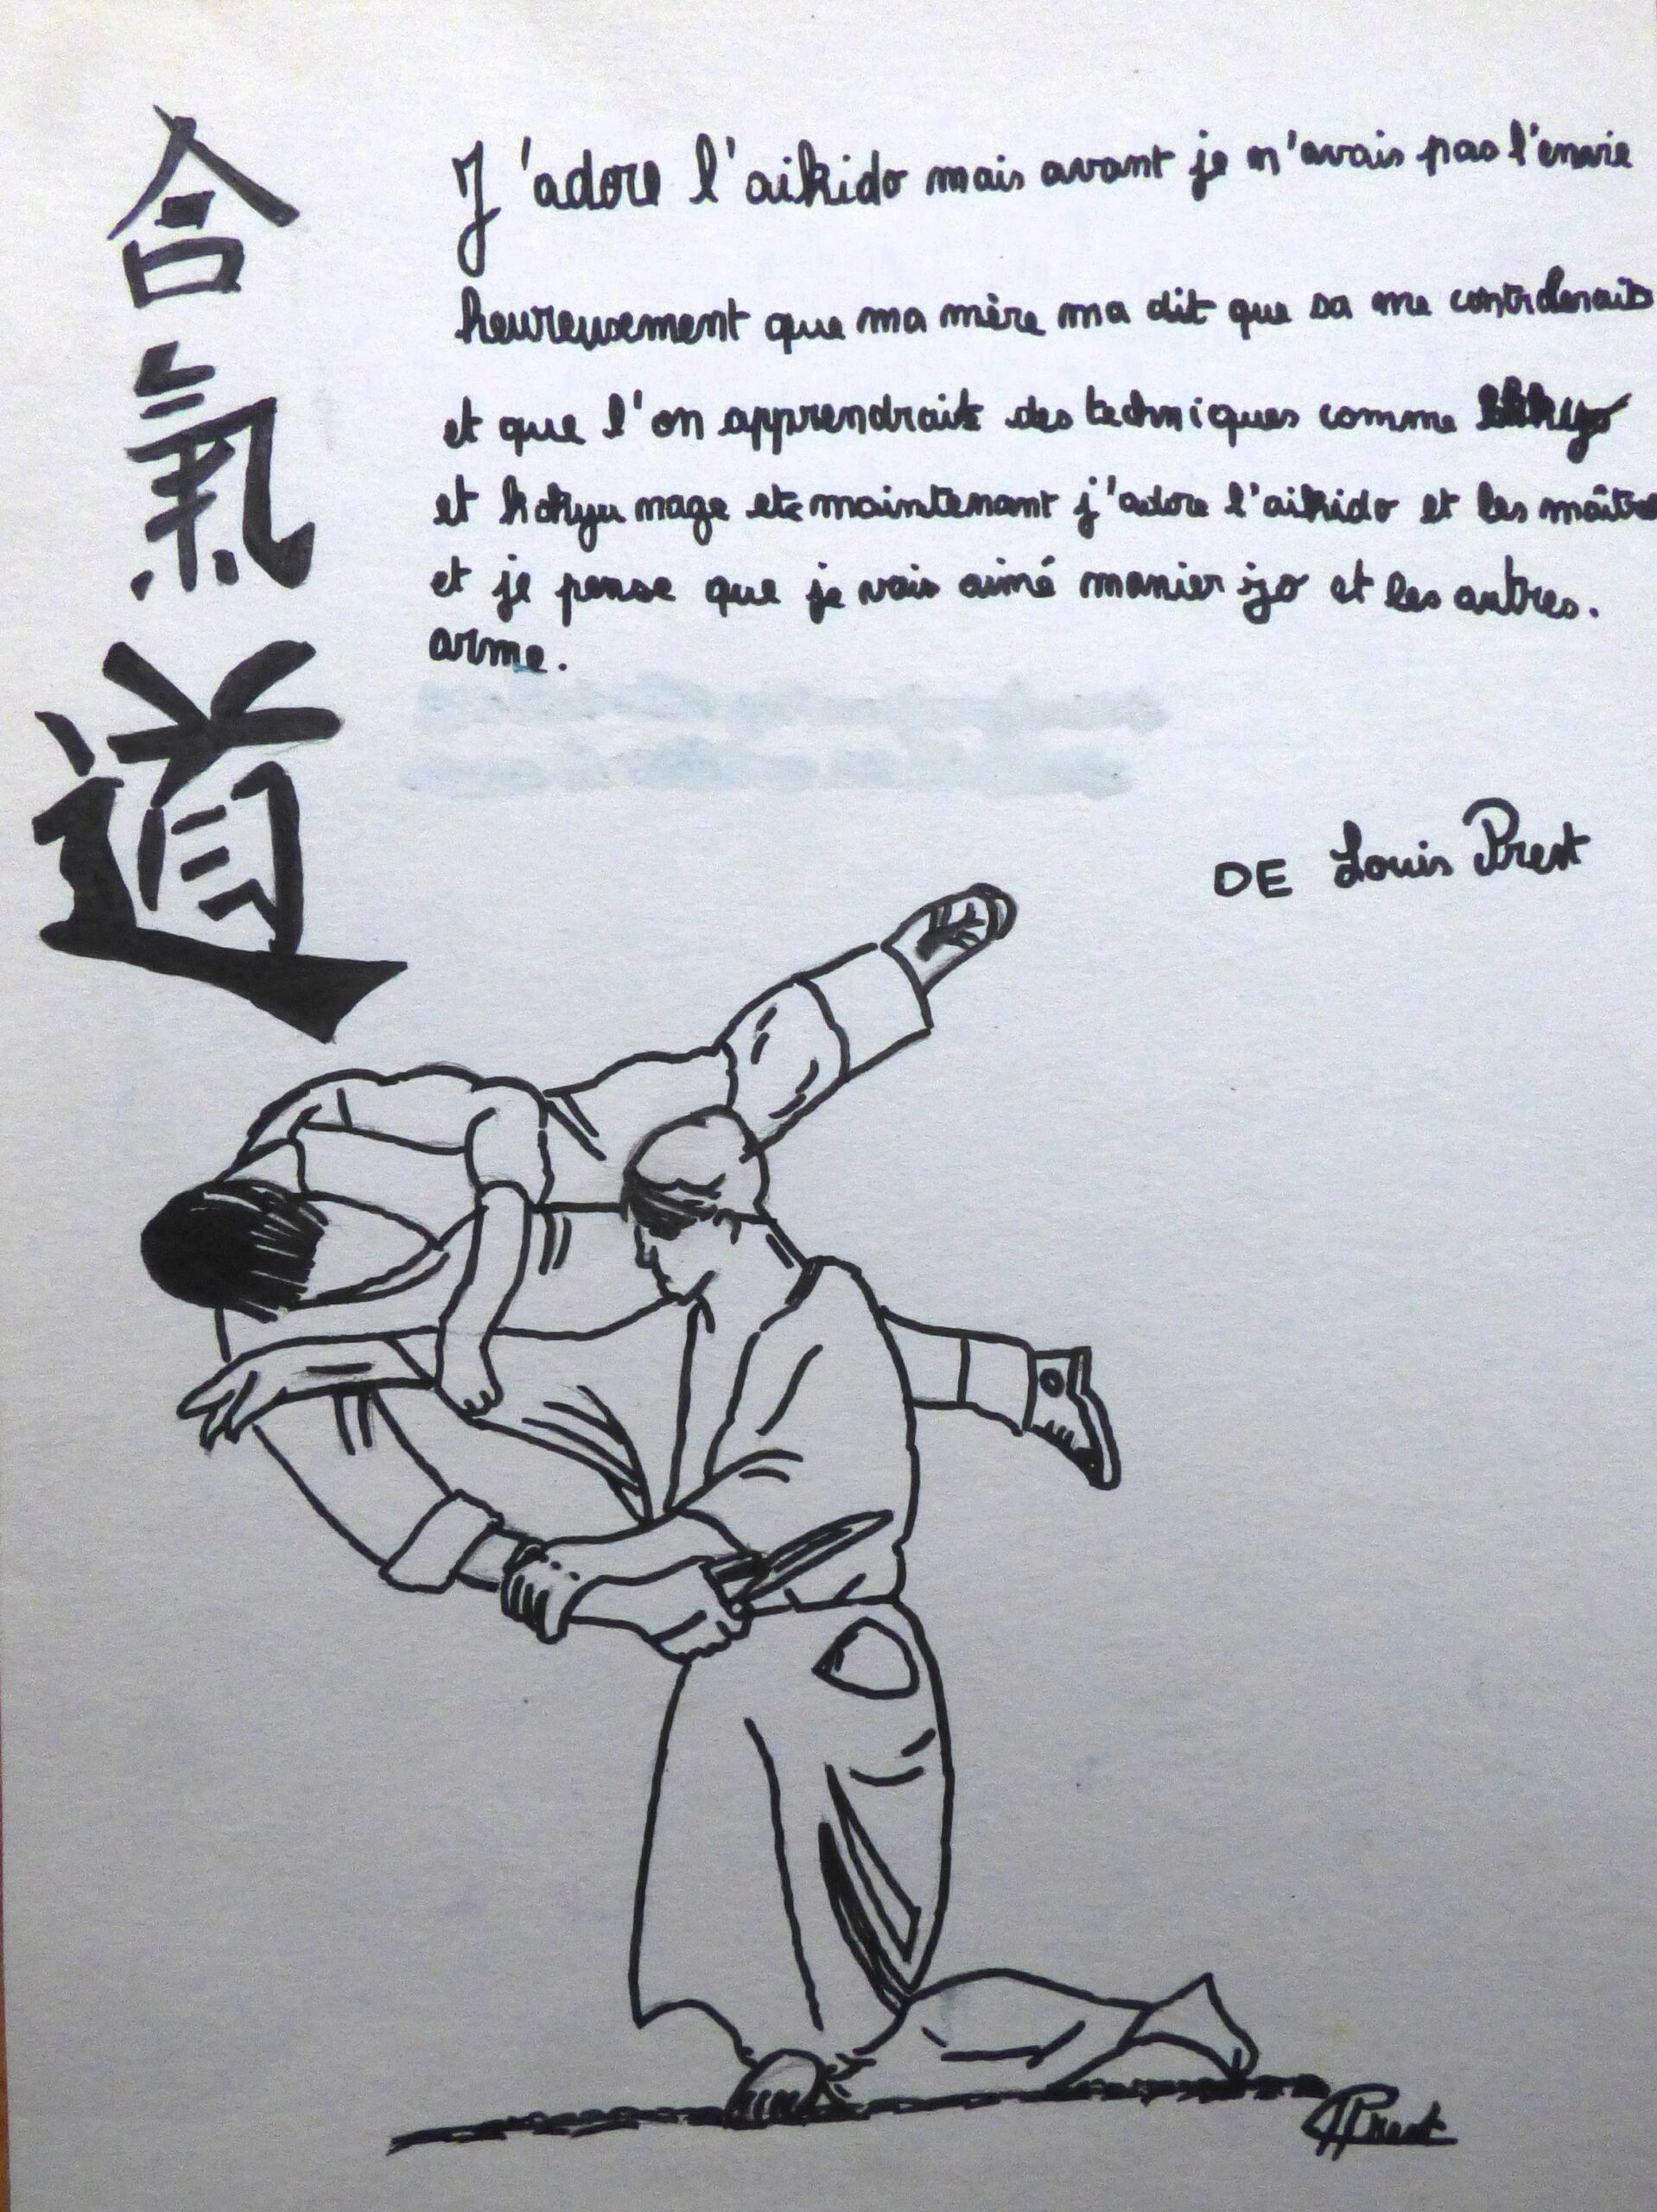 合
氣
道
J'adore l'aikido mais avant je n'avais pas l'envie
heureusement que ma mère ma dit que sa me
et que l'on apprendrait des techniques comme
et kokyu nage etc maintenant j'adore l'aikido et les maître
et je pense que je vais aimé manier jo et les autres.
arme.
DE Louis Prest
Prest